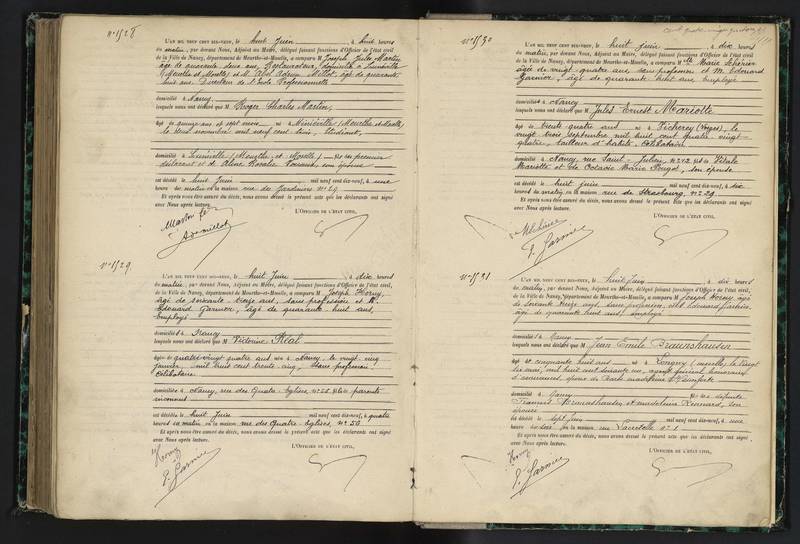 n° 1528
L'AN MIL NEUF CENT DIX-NEUF, le huit Juin, à huit heures
du matin, par devant Nous, Adjoint au Maire, délégué faisant fonctions d'Officier de l'état civil
de la Ville de Nancy, département de Meurthe-et-Moselle, a comparu M Joseph Jules Martin
âgé de quarante deux ans, Restaurateur, domicilié à Lunéville
(Meurthe et Moselle) et M. Abel Millot, âgé de quarante
huit ans, Directeur de l'école Professionnelle
domiciliés à Nancy
lesquels nous ont déclaré que M Roger Charles Martin,
âgé de quinze ans et sept mois né à (Meurthe et Moselle)
le deux novembre mil neuf cent trois, étudiant,
domicilié à Lunéville (Meurthe et Moselle) fils du premier
déclarant et de Rosalie son épouse
est décédé le huit Juin mil neuf cent dix-neuf, à une
heure du matin en la maison rue de Jardiniers n° 29
Et après nous être assuré du décès, nous avons dressé le présent acte que les déclarants ont signé
avec Nous après lecture.
L'OFFICIER DE L'ÉTAT CIVIL,
Martin
A. Millot
n° 1529
L'AN MIL NEUF CENT DIX-NEUF, le huit Juin, à dix heures
du matin, par devant Nous, Adjoint au Maire, délégué faisant fonctions d'Officier de l'état civil,
de la Ville de Nancy, département de Meurthe-et-Moselle, a comparu M Joseph Horny,
âgé de soixante treize ans, sans profession et M.
Edouard Garnier, âgé de quarante huit ans,
employé
domiciliés à Nancy
lesquels nous ont déclaré que M Victorine Réal
âgée de quatre vingt quatre ans née à Nancy le vingt cinq
Janvier mil huit cent trente cinq, sans profession
célibataire
domiciliée à Nancy, rue des Quatre Eglises, n° 50 fille de parents
inconnus
est décédée le huit Juin mil neuf cent dix-neuf, à quatre
heures du matin en la maison rue des Quatre Eglises, n° 50
Et après nous être assuré du décès, nous avons dressé le présent acte que les déclarants ont signé
avec Nous après lecture.
L'OFFICIER DE L'ÉTAT CIVIL,
Horny
E. Garnier
n° 1530
L'AN MIL NEUF CENT DIX-NEUF, le huit juin, à dix heures
du matin, par devant Nous, Adjoint au Maire, délégué faisant fonctions d'Officier de l'état civil
de la Ville de Nancy, département de Meurthe-et-Moselle, a comparu M Marie
âgée de vingt quatre ans, sans profession et M. Edouard
Garnier, âgé de quarante huit ans, employé
domiciliés à Nancy
lesquels nous ont déclaré que M Jules Ernest Mariotte
âgé de trente quatre ans né à (Vosges), le
vingt trois septembre mil huit cent quatre vingt
quatre, tailleur d'habits, célibataire
domicilié à Nancy, rue Saint Julien, fils de
Mariotte et de Octavie Marie son épouse
est décédé le huit juin mil neuf cent dix-neuf, à dix
heures du matin en la maison rue de Strasbourg, n° 29
Et après nous être assuré du décès, nous avons dressé le présent acte que les déclarants ont signé
avec Nous après lecture.
L'OFFICIER DE L'ÉTAT CIVIL,
E. Garnier
n° 1531
L'AN MIL NEUF CENT DIX-NEUF, le huit Juin, à dix heures
du matin, par devant Nous, Adjoint au Maire, délégué faisant fonctions d'Officier de l'état civil,
de la Ville de Nancy, département de Meurthe-et-Moselle, a comparu M Joseph Horny âgé
de soixante treize ans, sans profession, et M Edouard Garnier,
âgé de quarante huit ans, employé
domiciliés à Nancy
lesquels nous ont déclaré que M Jean Emile Braunshausen
âgé de cinquante huit ans né à Longwy (Moselle) le vingt
mil huit cent soixante un, agent général honoraire
époux de
domicilié à Nancy fils des défunts
Braunshausen et Madeleine son
épouse
est décédé le sept Juin mil neuf cent dix-neuf, à onze
heures du soir en la maison rue Lacretelle n° 1
Et après nous être assuré du décès, nous avons dressé le présent acte que les déclarants ont signé
avec Nous après lecture.
L'OFFICIER DE L'ÉTAT CIVIL,
Horny
E. Garnier